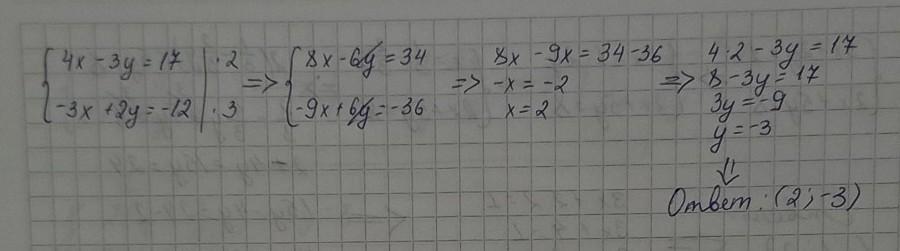 { 4x - 3y = 17 | · 2
-3x + 2y = -12 | · 3
=> { 8x - 6y = 34
-9x + 6y = -36
=> 8x - 9x = 34 - 36
-x = -2
x = 2
=> 4 · 2 - 3y = 17
8 - 3y = 17
3y = -9
y = -3
⇓
Ответ: (2; -3)